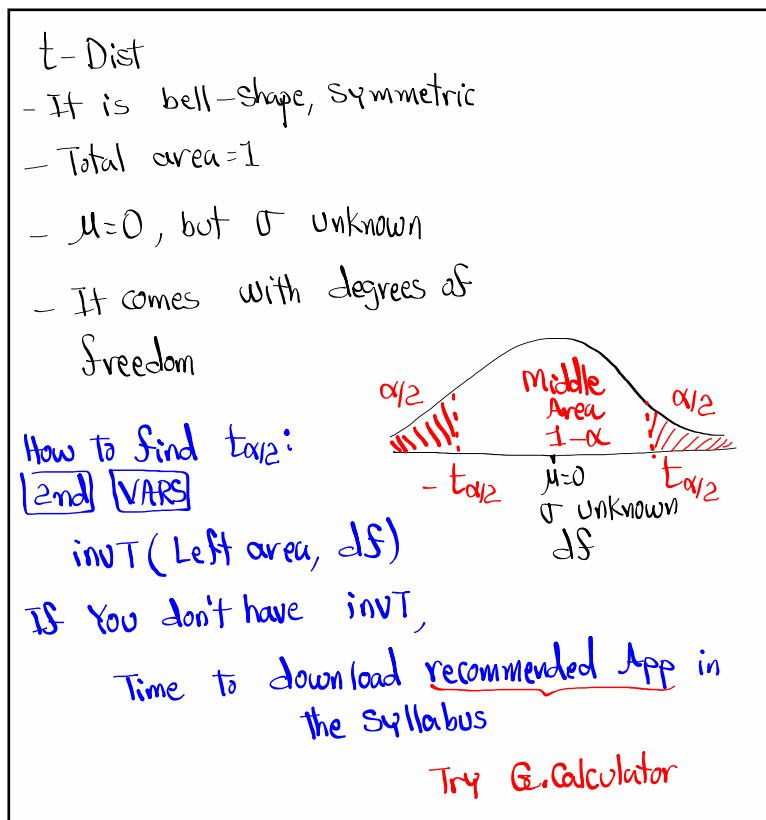 t-Dist
- It is bell-shape, symmetric
- Total area=1
- μ=0, but σ unknown
- It comes with degrees of
freedom
α/2
Middle
Area
1-α
α/2
- tα/2
μ=0
tα/2
σ unknown
df
How to find tα/2:
2nd VARS
invT(Left area, df)
If You don't have invT,
Time to download recommended App in
the Syllabus
Try G.Calculator